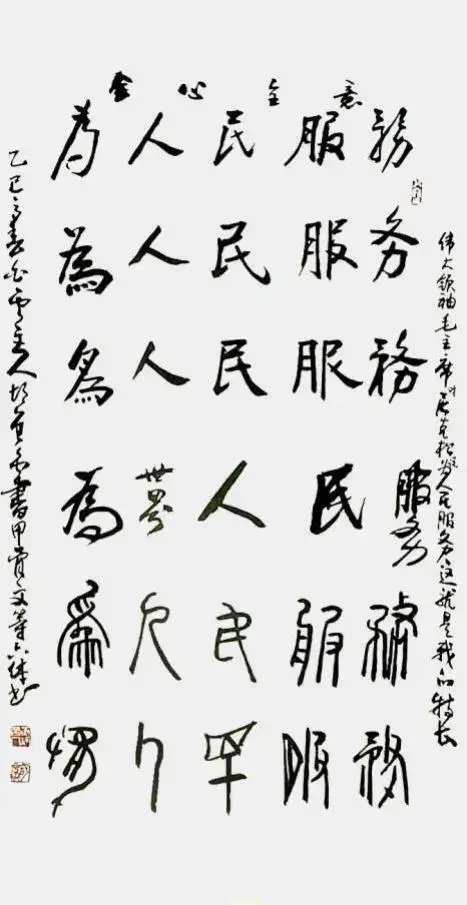 全心全意
為人民服務
為人民服务
為人民服務
為世界人民服务
為人民服務
為人民服務
伟大领袖毛主席对松为人民服务这就是我的特长
乙巳之春白云主人书甲骨文等六体书